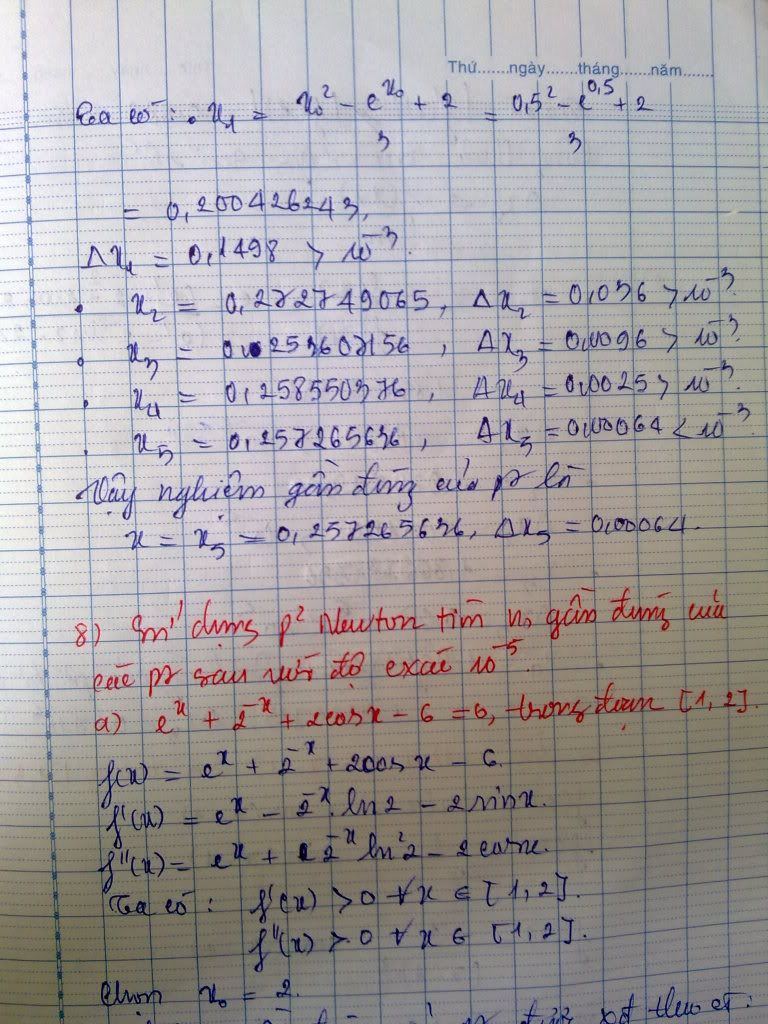 Thứ.......ngày.......tháng.......năm.......
Ta có: • x₁ = (x₀² - e^x₀ + 2)/3 = (0,5² - e^0,5 + 2)/3
= 0,200426243,
Δx₁ = 0,1498 > 10⁻³.
• x₂ = 0,272749065, Δx₂ = 0,036 > 10⁻³.
• x₃ = 0,253607156, Δx₃ = 0,0096 > 10⁻³.
• x₄ = 0,258550376, Δx₄ = 0,0025 > 10⁻³.
• x₅ = 0,257265636, Δx₅ = 0,00064 < 10⁻³.
Vậy nghiệm gần đúng của pt là
x = x₅ = 0,257265636, Δx₅ = 0,00064.
8) Sử dụng p² Newton tìm n₀ gần đúng của
các pt sau với độ cxác 10⁻⁵.
a) e^x + 2^-x + 2cosx - 6 = 0, trong đoạn [1, 2].
f(x) = e^x + 2^-x + 2cos x - 6.
f'(x) = e^x - 2^-x.ln2 - 2sinx.
f''(x) = e^x + 2^-x ln²2 - 2cosx.
Ta có: f'(x) > 0 ∀x ∈ [1, 2].
f''(x) > 0 ∀x ∈ [1, 2].
Chọn x₀ = 2.